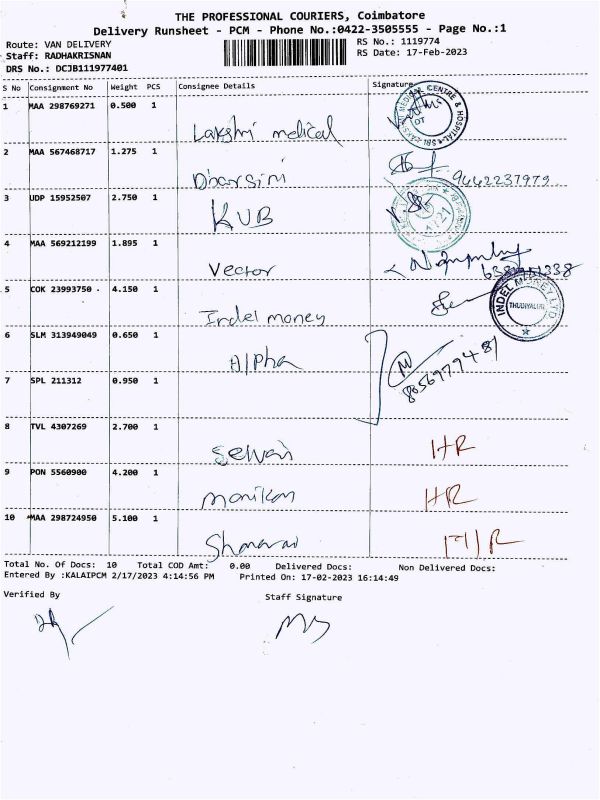 THE PROFESSIONAL COURIERS, Coimbatore
Delivery Runsheet - PCM - Phone No.:0422-3505555 - Page No.:1
Route: VAN DELIVERY
RS No.: 1119774
Staff: RADHAKRISNAN
RS Date: 17-Feb-2023
DRS No.: DCJB111977401
S No Consignment No Weight PCS Consignee Details Signature
1 MAA 298769271 0.500 1
Lakshmi medical
2 MAA 567468717 1.275 1
Dharsini 9442237979
3 UDP 15952507 2.750 1
KVB
4 MAA 569212199 1.895 1
Vector
5 COK 23993750 4.150 1
Indel money
INDEL MONEY LTD
THUDIYALUR
6 SLM 313949049 0.650 1
Alpha
7 SPL 211312 0.950 1
8 TVL 4307269 2.700 1
Selvan HR
9 PON 5560900 4.200 1
manikan HR
10 MAA 298724950 5.100 1
Total No. Of Docs: 10 Total COD Amt: 0.00 Delivered Docs: Non Delivered Docs:
Entered By :KALAIPCM 2/17/2023 4:14:56 PM Printed On: 17-02-2023 16:14:49
Verified By Staff Signature